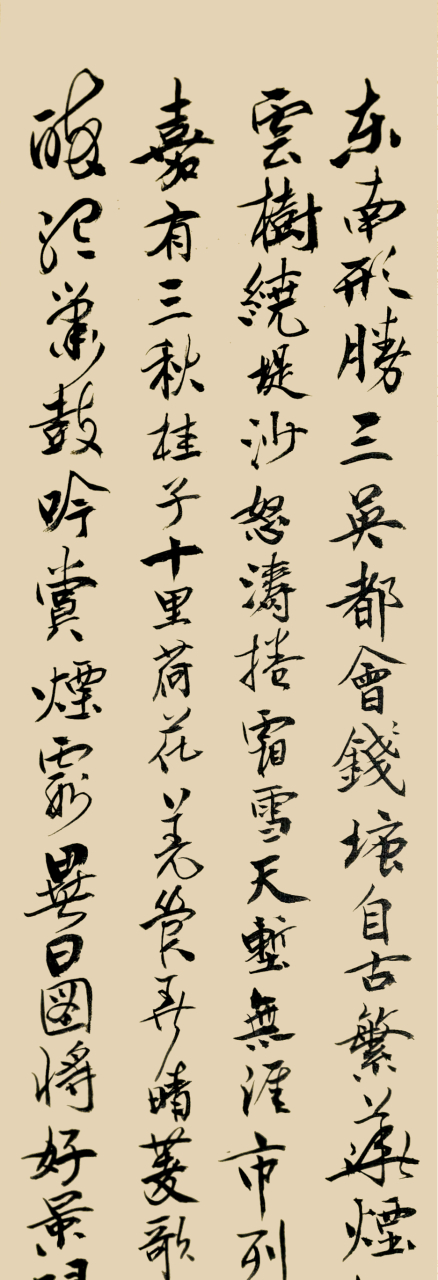 东南形勝三英都會錢塘自古繁華煙
雲樹繞堤沙怒濤捲霜雪天塹無涯市列
嘉有三秋桂子十里荷花羌管弄晴菱歌
醉聽簫鼓吟賞煙霞異日圖將好景